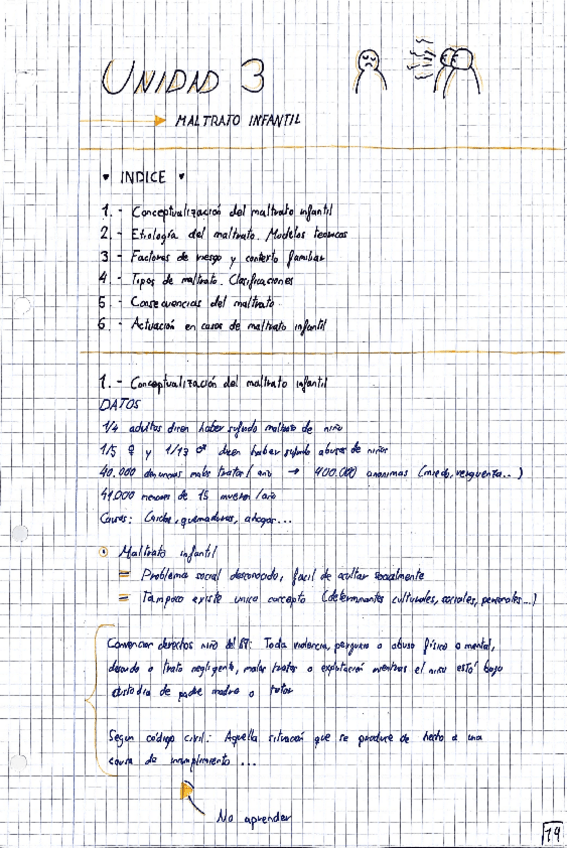 UNIDAD 3
MALTRATO INFANTIL
• INDICE •
1.- Conceptualización del maltrato infantil
2.- Etiología del maltrato. Modelos teoricos
3.- Factores de riesgo y contexto familiar
4.- Tipos de maltrato. Clasificaciones
5.- Consecuencias del maltrato
6.- Actuación en casos de maltrato infantil
1.- Conceptualización del maltrato infantil
DATOS
1/4 adultos dicen haber sufrido maltrato de niño
1/5 ♀ y 1/13 ♂ dicen haber sufrido abusos de niños
40.000 denuncias malos tratos / año → 400.000 anonimas (miedo, verguenza...)
41.000 menores de 15 mueren / año
Causas: Caidas, quemaduras, ahogar...
Maltrato infantil
= Problema social desconocido, facil de ocultar socialmente
= Tampoco existe unico concepto (determinantes culturales, sociales, personales...)
Convencion derechos niño del 89: Toda violencia, perjuicio o abuso físico o mental,
descuido o trato negligente, malos tratos o explotación mientras el niño esté bajo
custodia de padre madre o tutor
Segun código civil: Aquella situación que se produce de hecho a una
causa de incumplimiento ...
No aprender
19